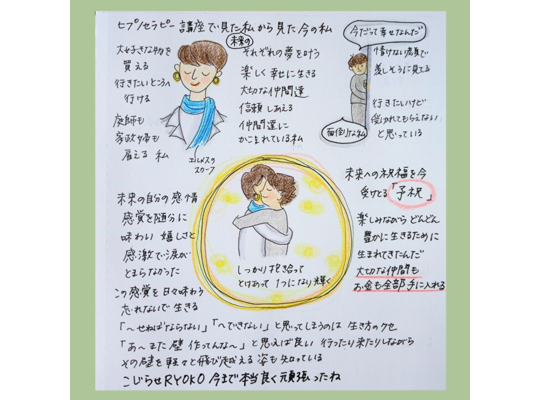 ヒプノセラピー講座で見た私から見た今の私
大好きな物を
買える
行きたいところへ
行ける
庭師も
家政婦も
雇える 私
エルメスの
スカーフ
未来の
それぞれの夢を叶う
楽しく幸せに生きる
大切な仲間達
信頼しあえる
仲間達に
かこまれている私
今だって幸せなんだ
情けない顔で
羨しそうに見てる
行きたいけど
私
行きたいけど
と思っている
未来への祝福を今
受けとる「予祝」
楽しみながらどんどん
豊かに生きるために
生まれてきたんだ
大切な仲間も
お金も全部手に入れる
未来の自分の感情
感覚を随分に
味わい 嬉しさと
感激で涙が
とまらなかった
しっかり抱き合って
とけあって1つになり輝く
この感覚を日々味わう
忘れないで生きる
「〜せねばならない」「〜できない」と思ってしまうのは 生き方のクセ
「あ〜また壁 作ってんな〜」と思えば良い 行ったり来たりしながら
その壁を軽々と飛び越える姿も知っている
こじらせRYOKO 今まで本当良く頑張ったね